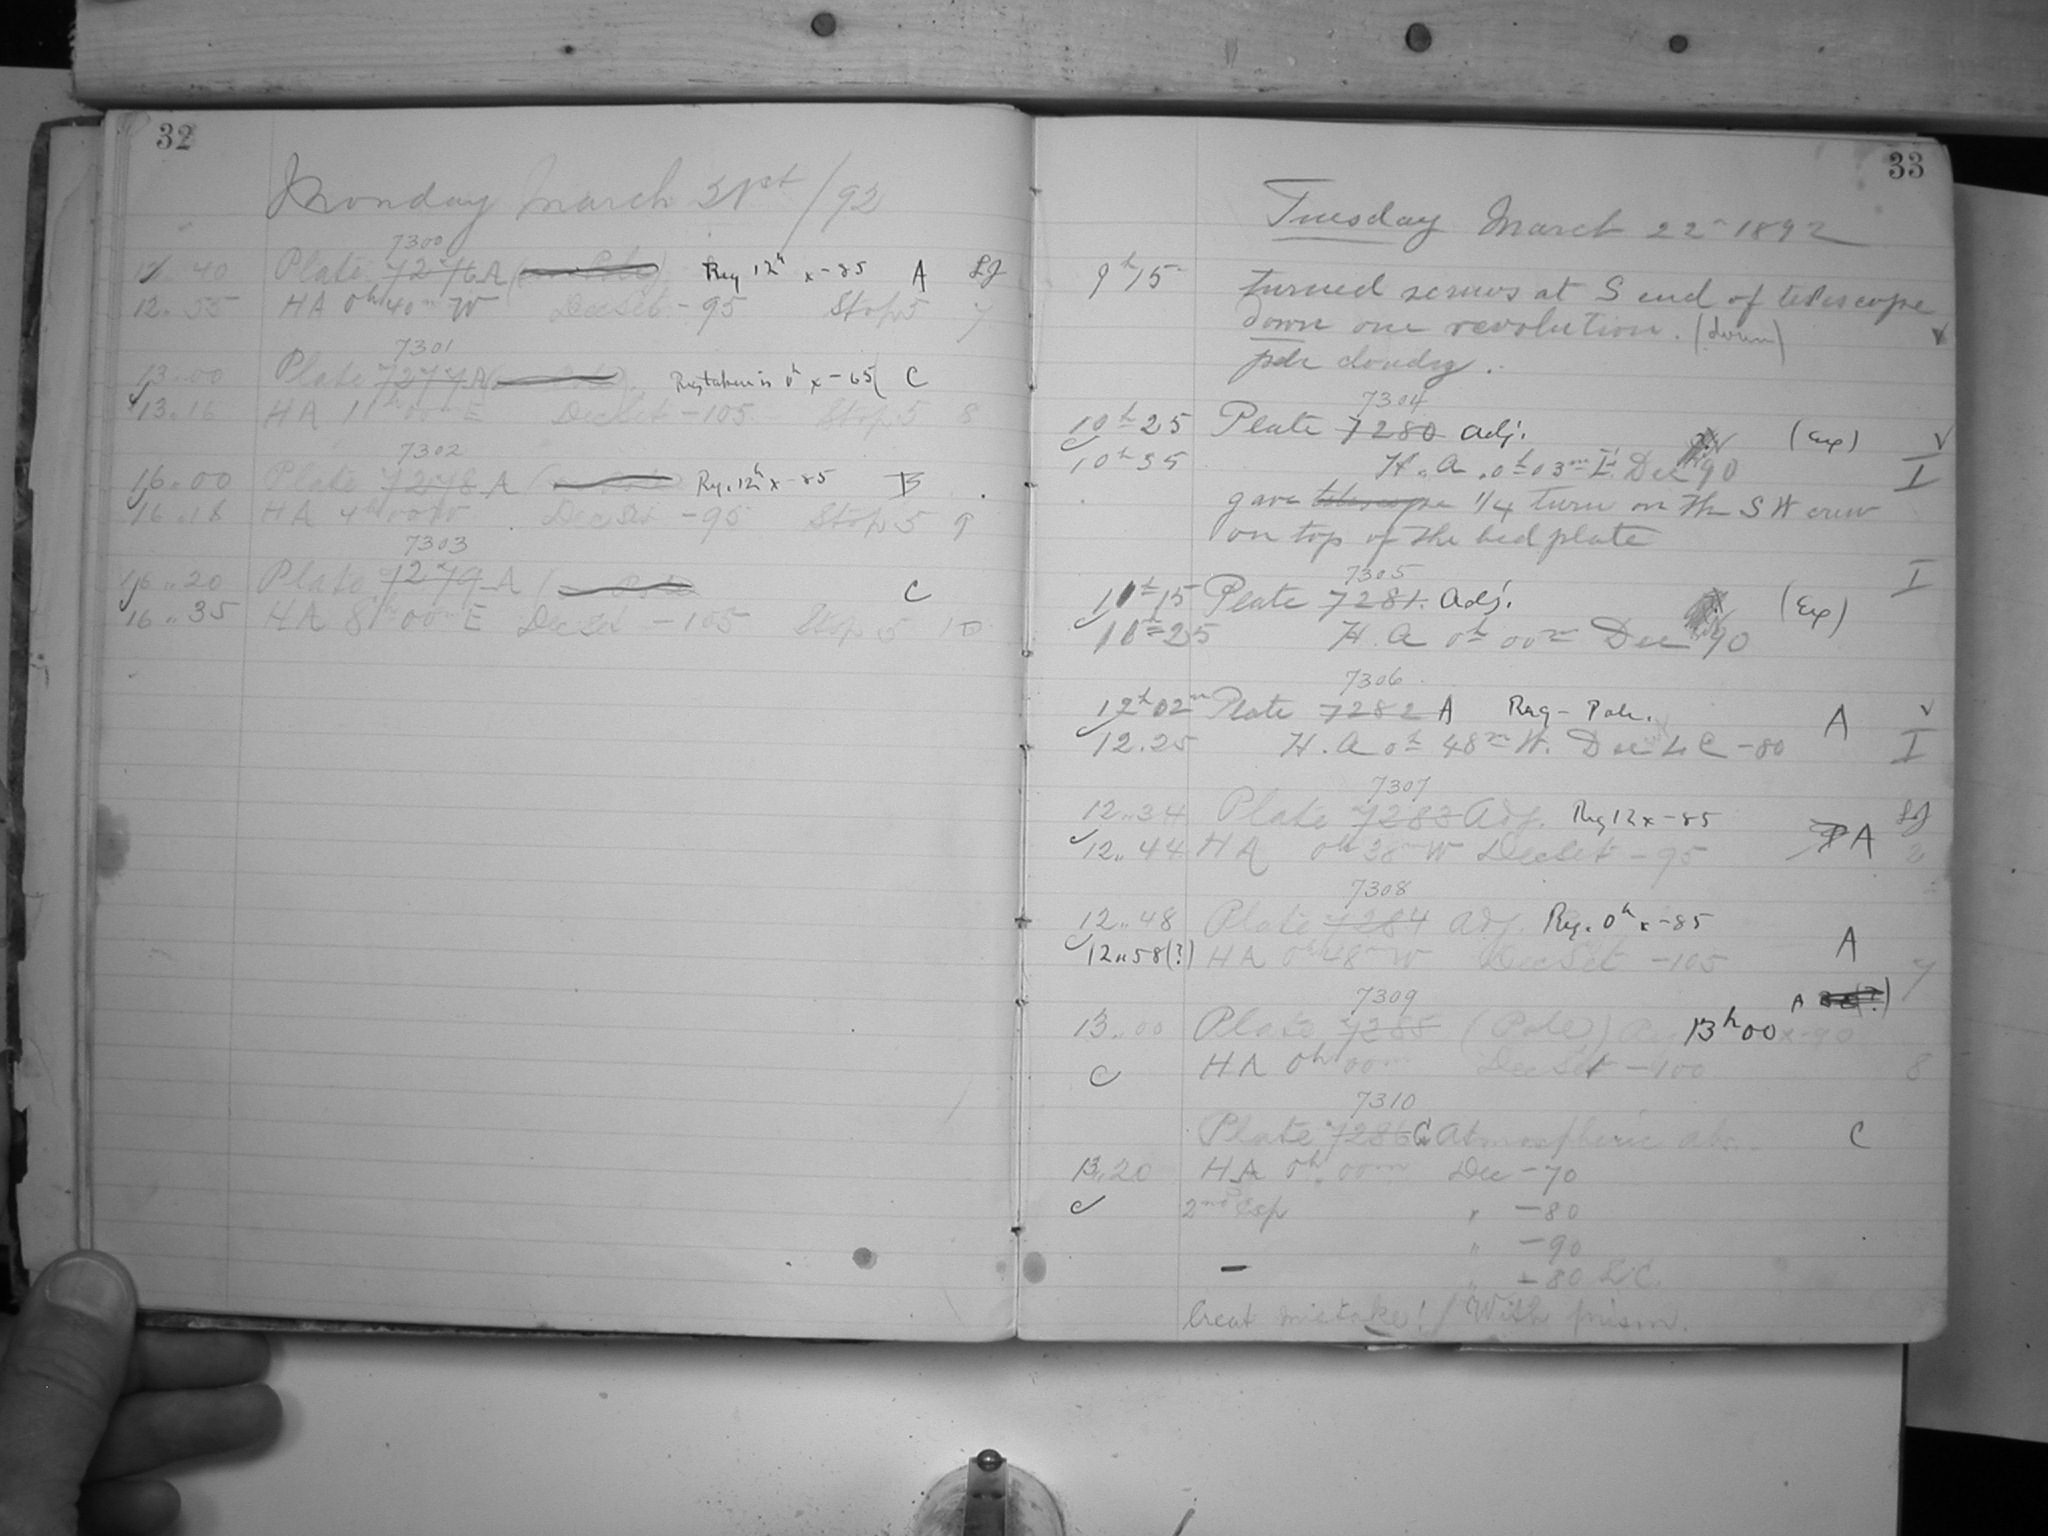 32
Monday March 21st /92
7300
12.. 40 Plate 7276 A Reg 12h x -85 A
12. 55 HA 0h 40m W Dec Set - 95 Stop 5 7
7301
13..00 Plate 7277 A Reg taken is 0h x -65 C
13..16 HA 11h 00m E Dec Set -105 Stop 5 8
7302
16..00 Plate 7278 A Reg. 12h x -85 B
16..18 HA 4h 00 W Dec Set -95 Stop 5 9
7303
16..20 Plate 7279 A C
16..35 HA 8h 00m E Dec Set -105 Stop 5 10
33
Tuesday March 22 1892
9h 15 turned screws at S end of telescope
down one revolution. (down)
cloudy.
7304
10h 25 Plate 7280 adj. (Exp)
10h 35 H. A. 0h 03m E. Dec 90 I
gave telescope 1/4 turn on the S W crew
on top of the bed plate
7305 I
11h 15 Plate 7281. Adj. (Exp)
11h 25 H. A 0h 00m Dec 90
7306
12h 02m Plate 7282 A Reg - Pole. A
12.25 H. A 0h 48m W. Dec L C -80 I
7307
12..34 Plate 7283 Adj. Reg 12 x -85 A
12..44 HA 0h 38m W Dec Set -95 2
7308
12..48 Plate 7284 Adj. Reg. 0h x -85 A
12..58(?) HA 0h 48m W Dec Set -105 7
7309 A
13..00 Plate 7285 (Pole) 13h 00 x -90
HA 0h 00m Dec Set -100 8
7310
Plate 7286 C Atmospheric abs. C
13..20 HA 0h 00m Dec -70
2nd Exp " -80
" -90
" -80 L.C.
Great mistake! / With prism.